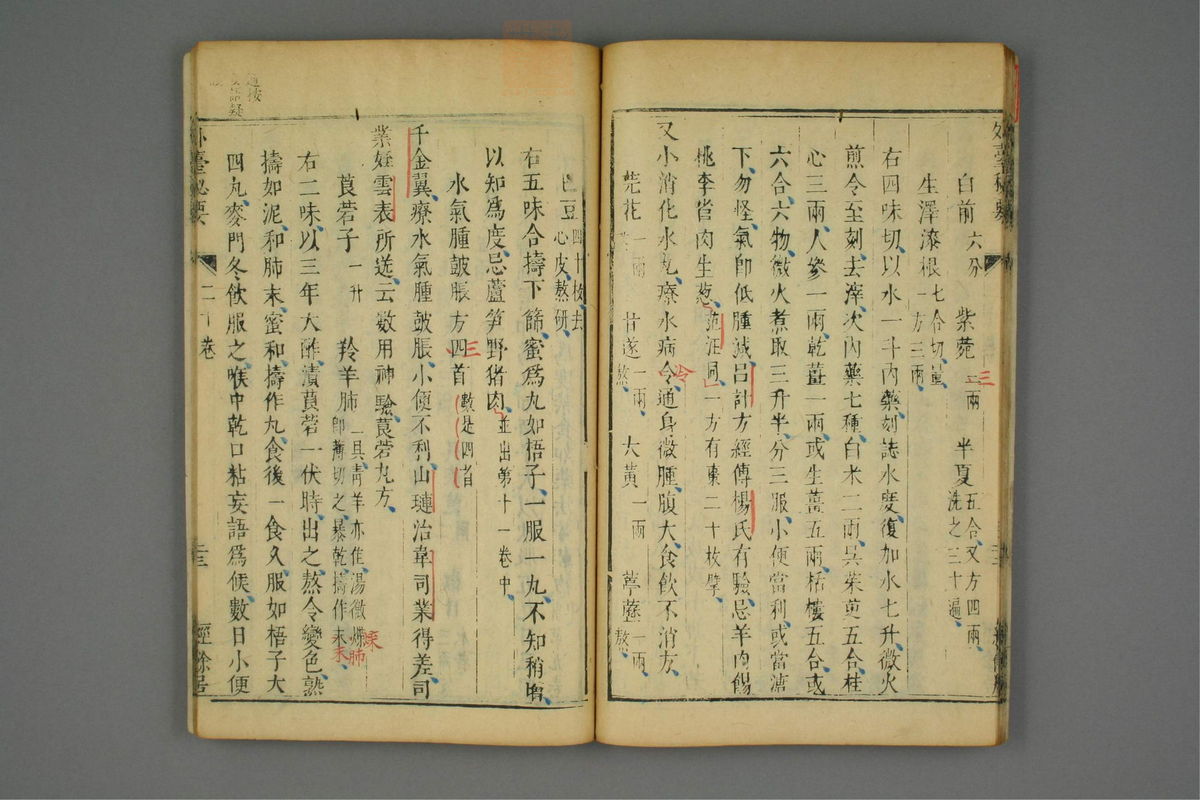 白前六分 紫菀二兩 三 半夏五合又方四兩洗之三十遍
生澤漆根七合切量一方三兩
右四味切以水一斗內藥刻誌水度復加水七升微火
煎令至刻去滓次內藥七種白术二兩吳茱萸五合桂
心三兩人參一兩乾薑一兩或生薑五兩栝樓五合或
六合六物微火煮取三升半分三服小便當利或當溏
下勿怪氣即低腫減呂計方經傳楊氏有驗忌羊肉餳
桃李雀肉生葱范汪同一方有棗二十枚擘
又小消化水丸療水病令通身微腫腹大食飲不消方
芫花一兩 甘遂一兩熬 大黃一兩 葶藶一兩熬
巴豆四十枚去心皮熬研
右五味合擣下篩蜜爲丸如梧子一服一丸不知稍增
以知爲度忌蘆笋野猪肉並出第十一卷中
水氣腫鼓脹方四首 三 數是四首
千金翼療水氣腫鼓脹小便不利山璉治韋司業得差司
業姪雲表所送云數用神驗莨菪丸方
莨菪子一升 羚羊肺一具青羊亦佳湯微煠肺即薄切之暴乾擣作末
右二味以三年大酢漬莨菪一伏時出之熬令變色熟
擣如泥和肺末蜜和擣作丸食後一食久服如梧子大
四丸麥門冬飲服之喉中乾口粘妄語爲候數日小便
外臺秘要 二十卷 經餘居